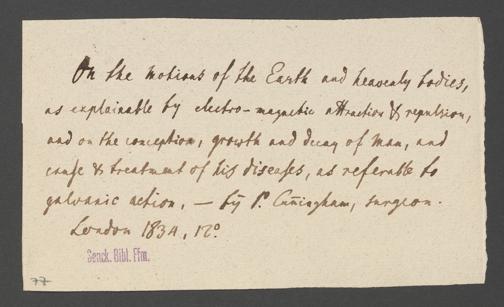 On the motions of the Earth and heavenly bodies,
as explainable by electro-magnetic attraction & repulsion,
and on the conception, growth and decay of man, and
cause & treatment of his diseases, as referable to
galvanic action, — by P. Cuningham, surgeon.
London 1834, 12º.
Senck. Bibl. Ffm.
77